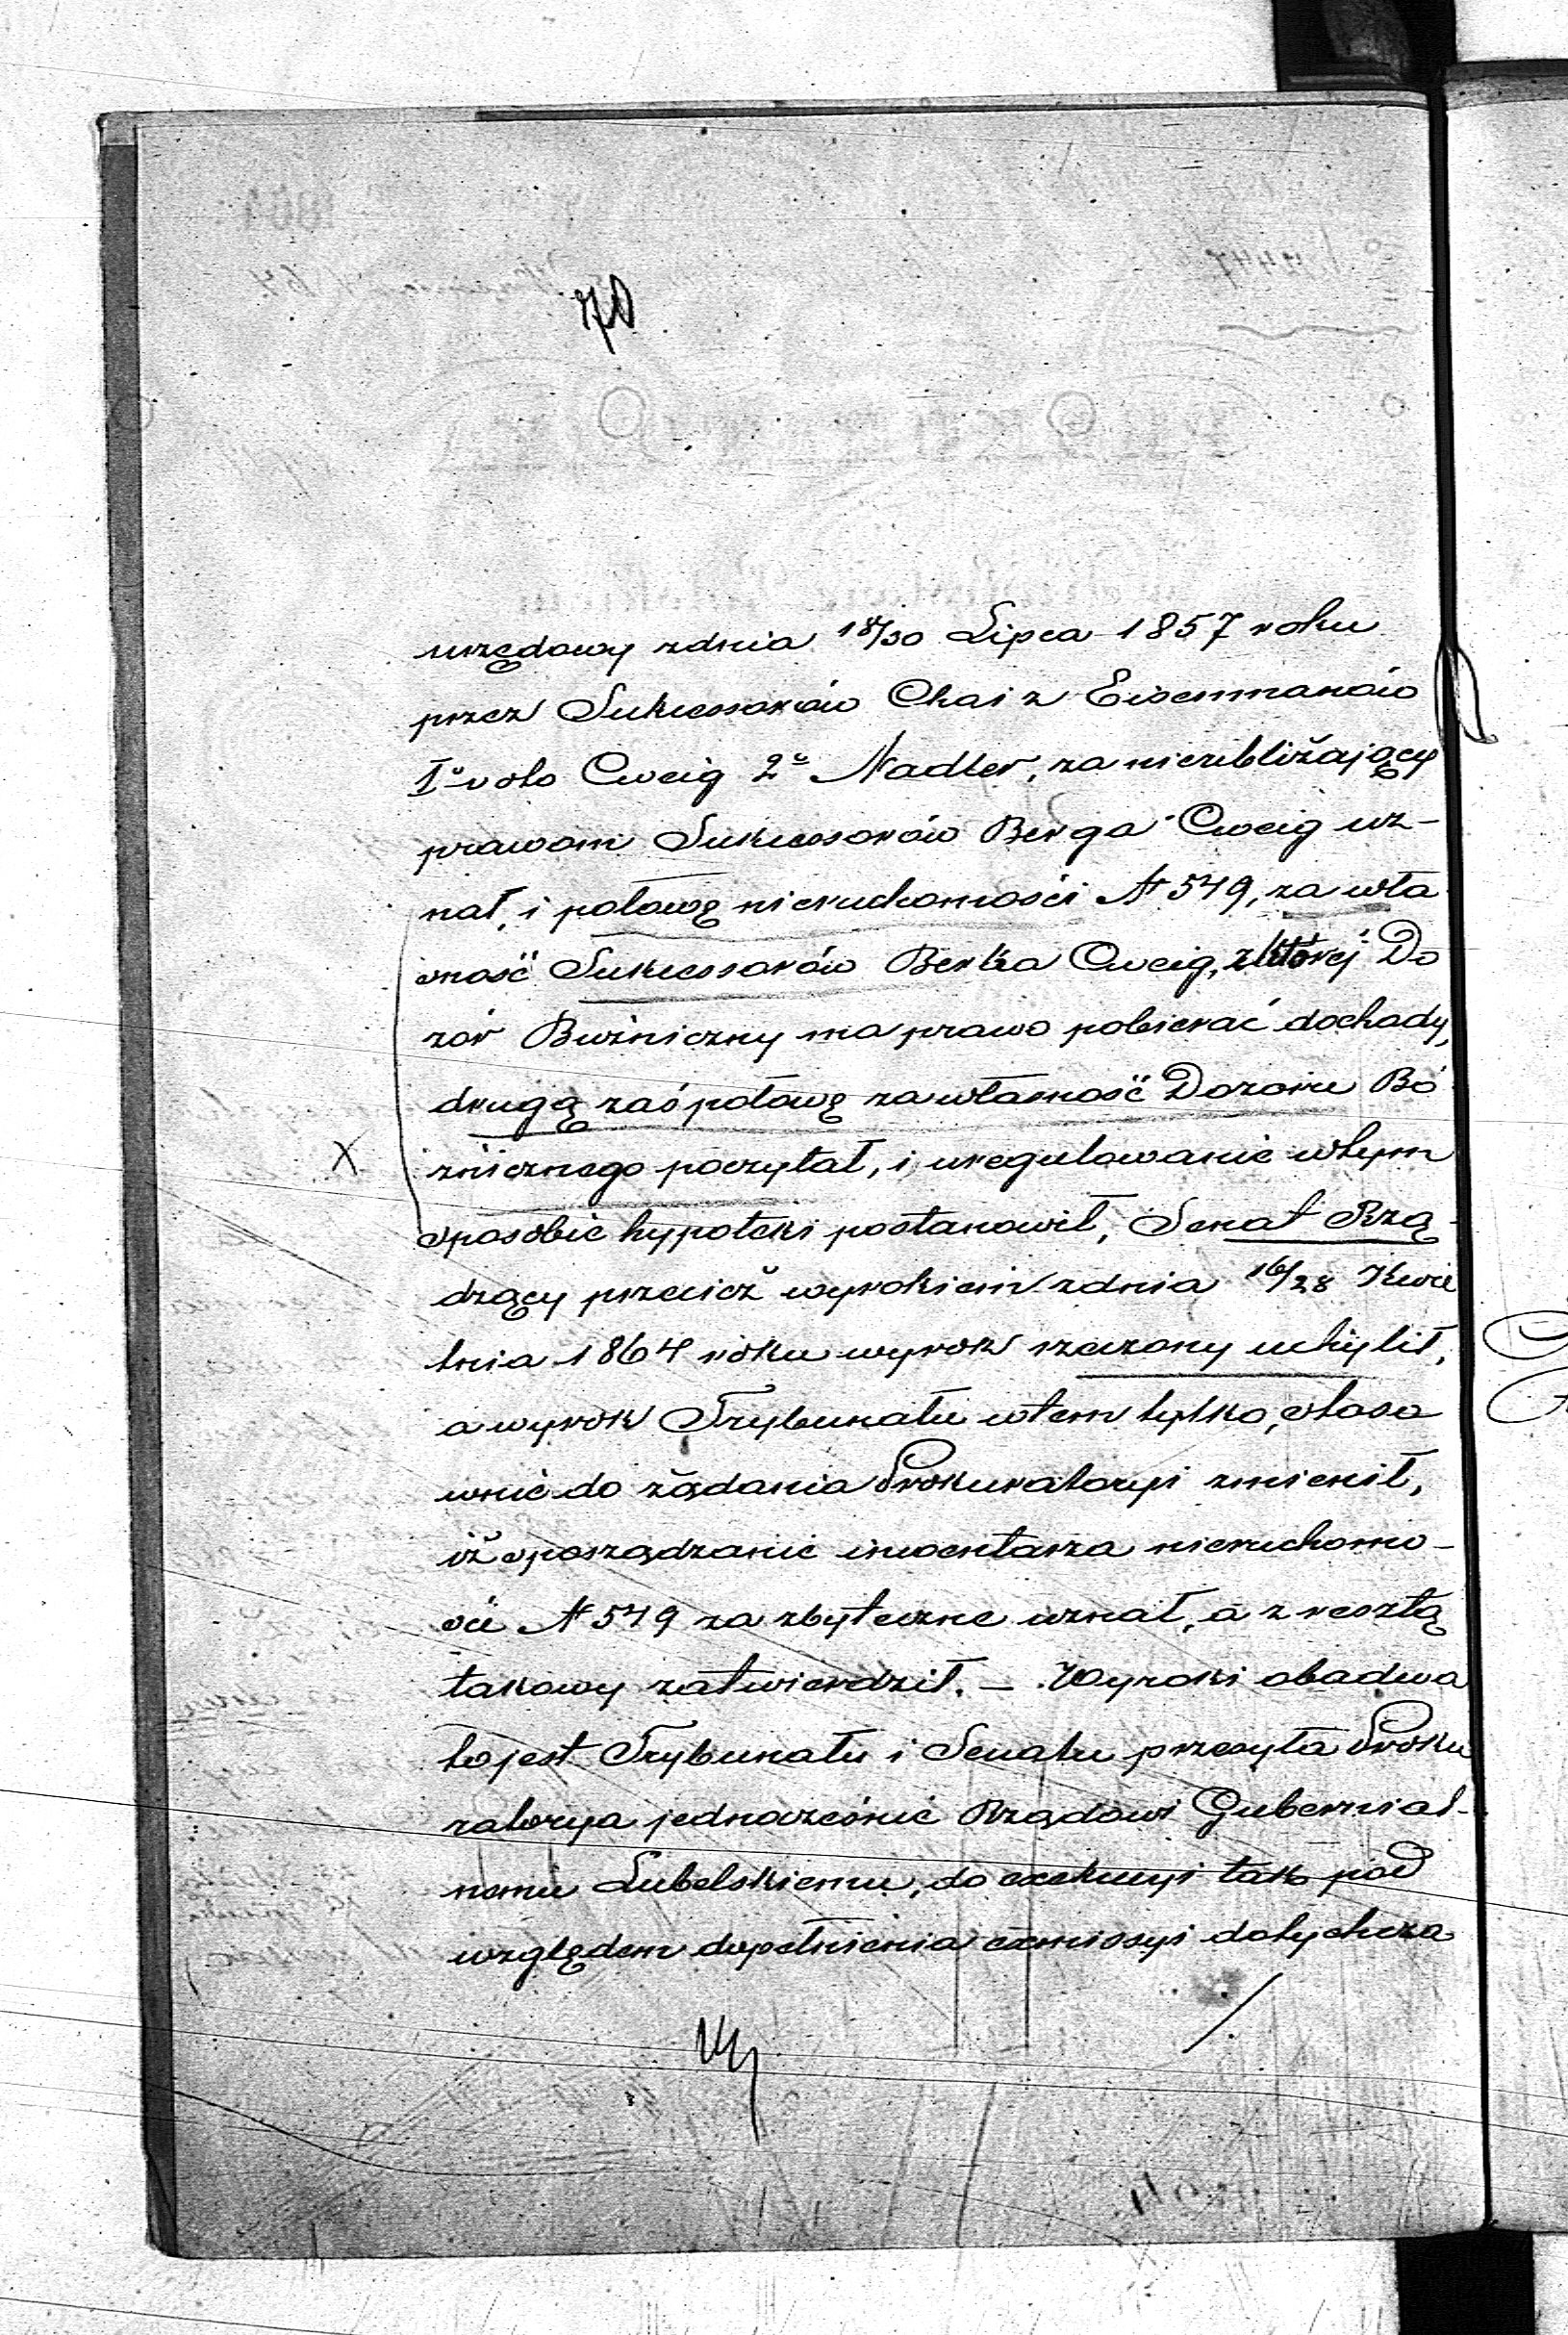 170
urzędowy zdnia 18/30 Lipca 1857 roku
przez Sukcessorów Chai z Eisenmanów
1º voto Cweig 2º Nadler, za nieubliżający
prawom Sukcessorów Berga Cweig uz-
nał, i połowę nieruchomości N 549, za wła
sność Sukcessorów Berka Cweig, z której Do
zór Bużniczny ma prawo pobierać dochody,
drugą zaś połowę za własność Dozoru Bó
żnicznego poczytał, i uregulowanie w tym
X
sposobie hypoteki postanowił, Senat Rzą-
dzący przecież wyrokiem zdnia 16/28 Kwie
tnia 1864 roku wyrok rzeczony uchylił,
a wyrok Trybunału w tem tylko, stoso
wnie do żądania Prokuratoryi zmienił,
iż sporządzanie inwentarza nieruchomo-
ści N 549 za zbyteczne uznał, a z resztą
takowy zatwierdził. – Wyroki obadwa
to jest Trybunału i Senatu przesyła Proku
ratorya jednocześnie Rządowi Gubernial-
nemu Lubelskiemu, do exekucyi tak pod
względem dopełnienia exmissyi dotychcza